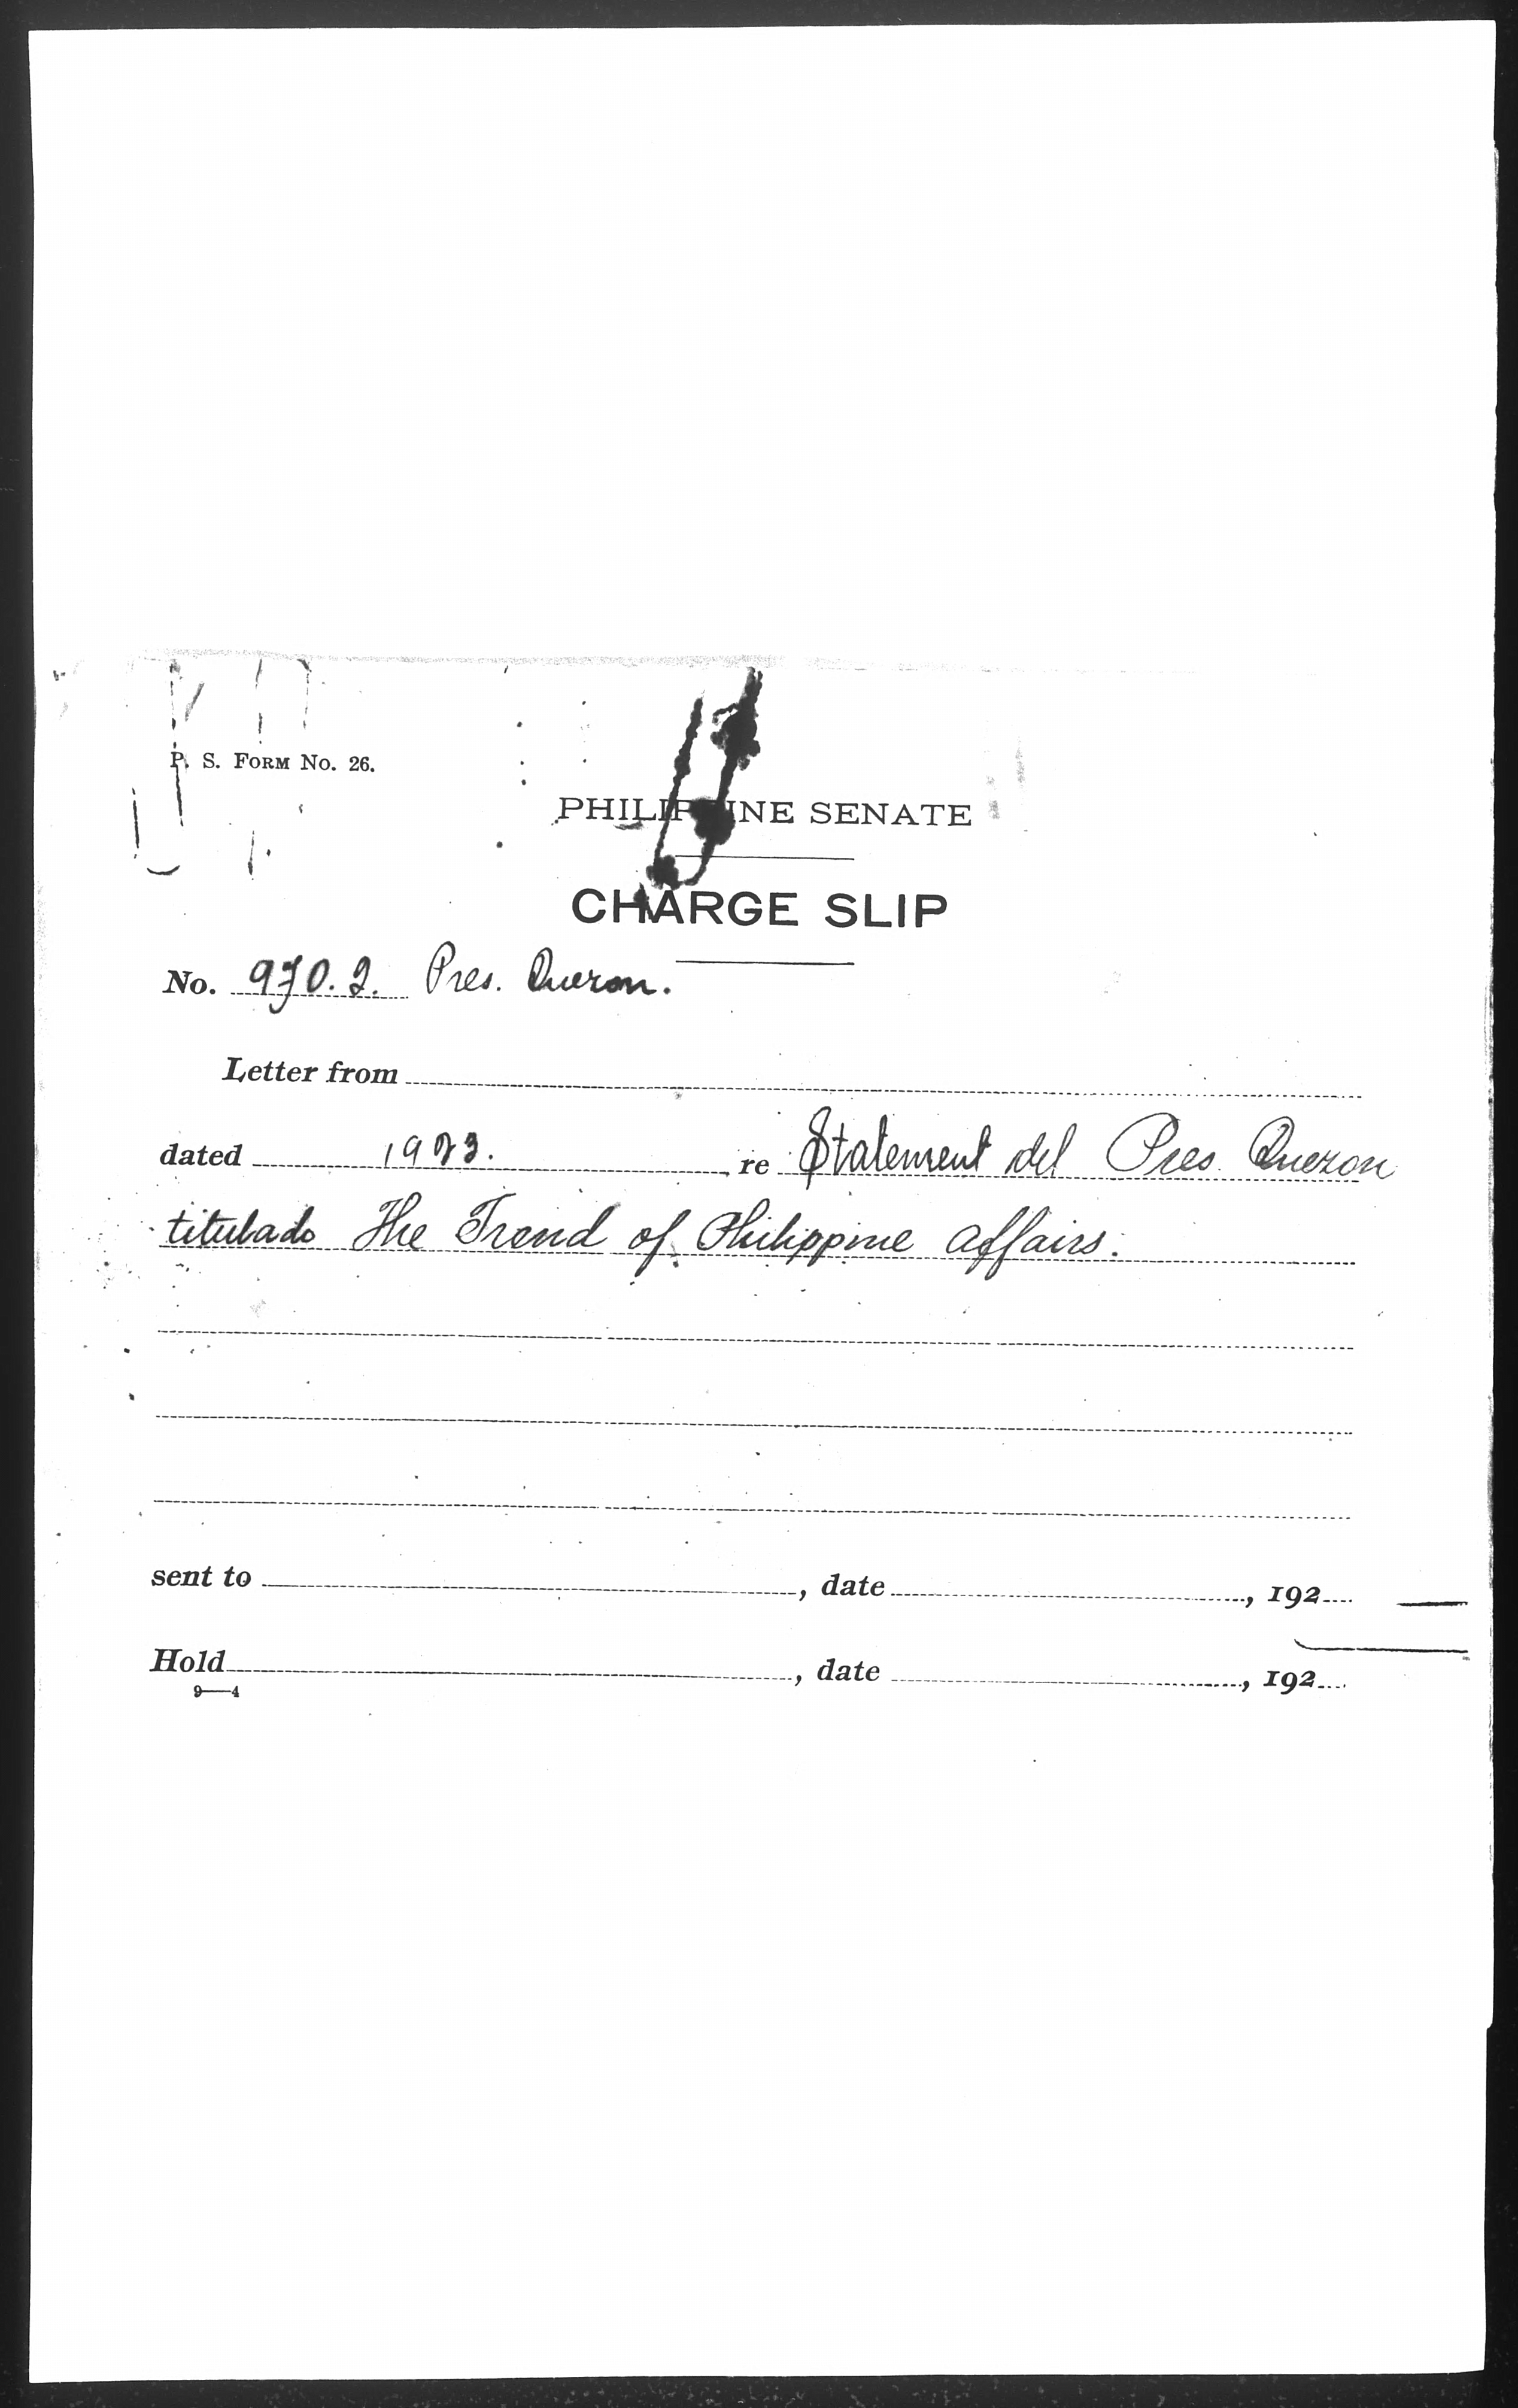 P. S. FORM NO. 26.
PHILIPPINE SENATE
CHARGE SLIP
No. 970.2. Pres. Quezon.
Letter from
dated 1923. re Statement del Pres. Quezon
titulado The Trend of Philippine Affairs.
sent to , date , 192
Hold , date , 192
9—4